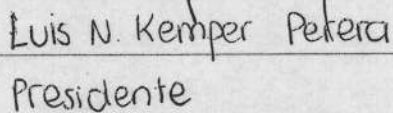 Luis N. Kemper Petera
Presidente